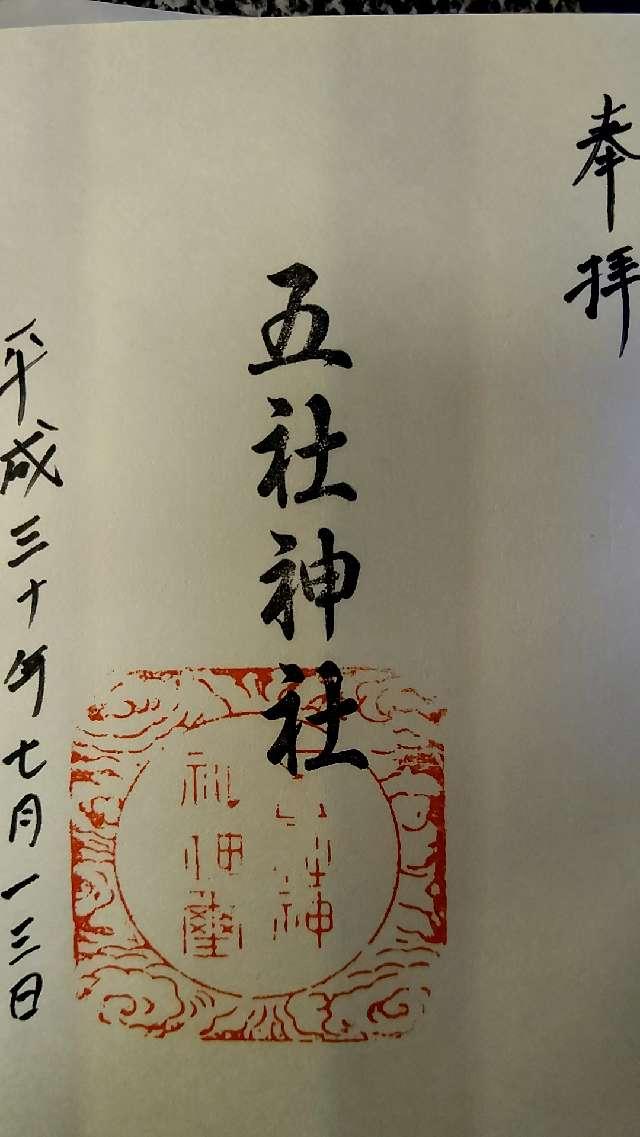 奉拝
五社神社
平成三十年七月一三日